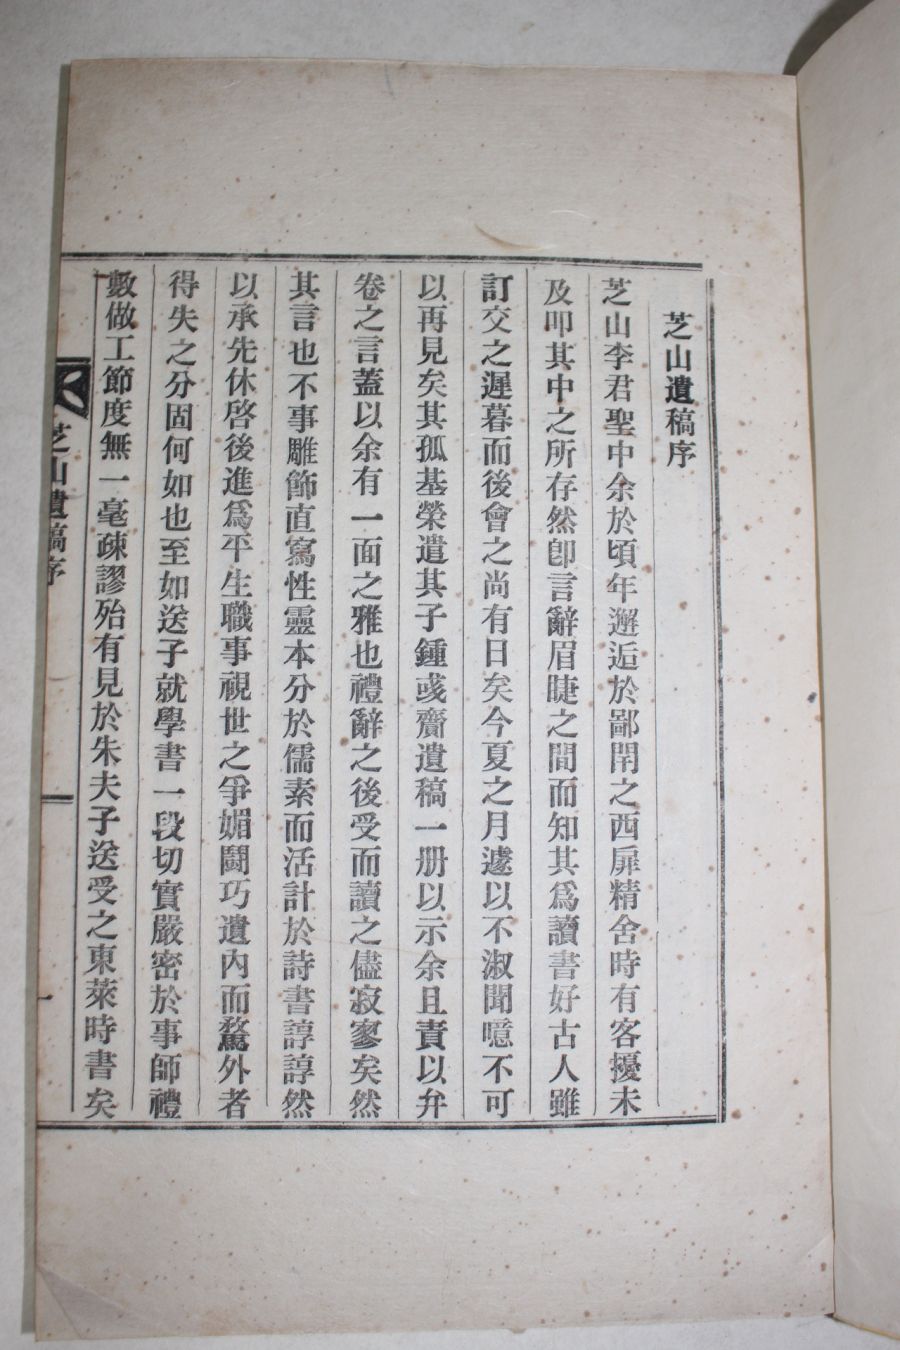 芝山遺稿序
芝山李君聖中余於頃年邂逅於鄙閈之西扉精舍時有客擾未
及叩其中之所存然卽言辭眉睫之間而知其爲讀書好古人雖
訂交之遲暮而後會之尚有日矣今夏之月遽以不淑聞噫不可
以再見矣其孤基榮遣其子鍾彧齎遺稿一册以示余且責以弁
卷之言蓋以余有一面之雅也禮辭之後受而讀之儘寂寥矣然
其言也不事雕飾直寫性靈本分於儒素而活計於詩書諄諄然
以承先休啓後進爲平生職事視世之爭媚鬪巧遺內而騖外者
得失之分固何如也至如送子就學書一段切實嚴密於事師禮
數做工節度無一毫疎謬殆有見於朱夫子送受之東萊時書矣
芝山遺稿序
一